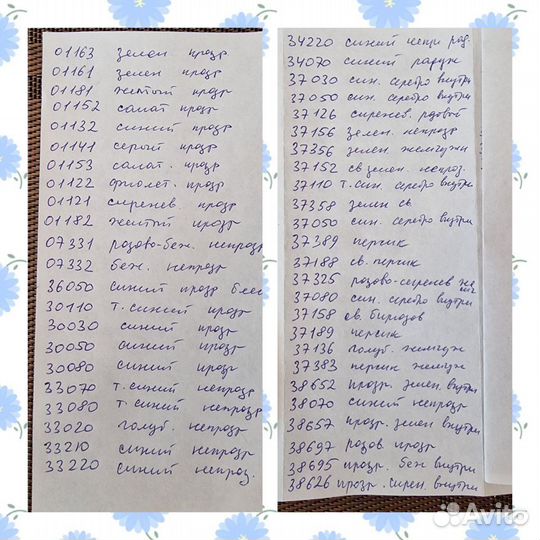 01163 зелен прозр
01161 зелен прозр
01181 желтый прозр
01152 салат прозр
01132 синий прозр
01141 серый прозр
01153 салат. прозр
01122 фиолет. прозр
01121 сиренев. прозр
01182 желтый прозр
07331 розово-беж. непрозр
07332 беж. непрозр
36050 синий прозр блес
30110 т. синий прозр
30030 синий прозр
30050 синий прозр
30080 синий прозр
33070 т. синий непрозр
33080 т. синий непрозр
33020 голуб. непрозр
33210 синий непрозр
33220 синий непроз.
34220 синий непр рад.
34070 синий радуж
37030 син. серебро внутри
37050 син. серебро внутри
37126 сиренев. розовый
37156 зелен. непрозр
37356 зелен жемчужн
37152 св зелен. непроз.
37110 т. син. серебро внутри
37358 зелен св
37050 син. серебро внутри
37389 персик
37188 св. персик
37325 розово-сиренев
37080 син. серебро внутри
37158 св. бирюзов
37189 персик
37136 голуб. жемчуж
37383 персик жемчуж
38652 прозр. зелен. внутри
38070 синий непрозр
38657 прозр. зелен внутри
38697 розов прозр
38695 прозр. беж внутри
38626 прозр. сирен. внутри
Avito